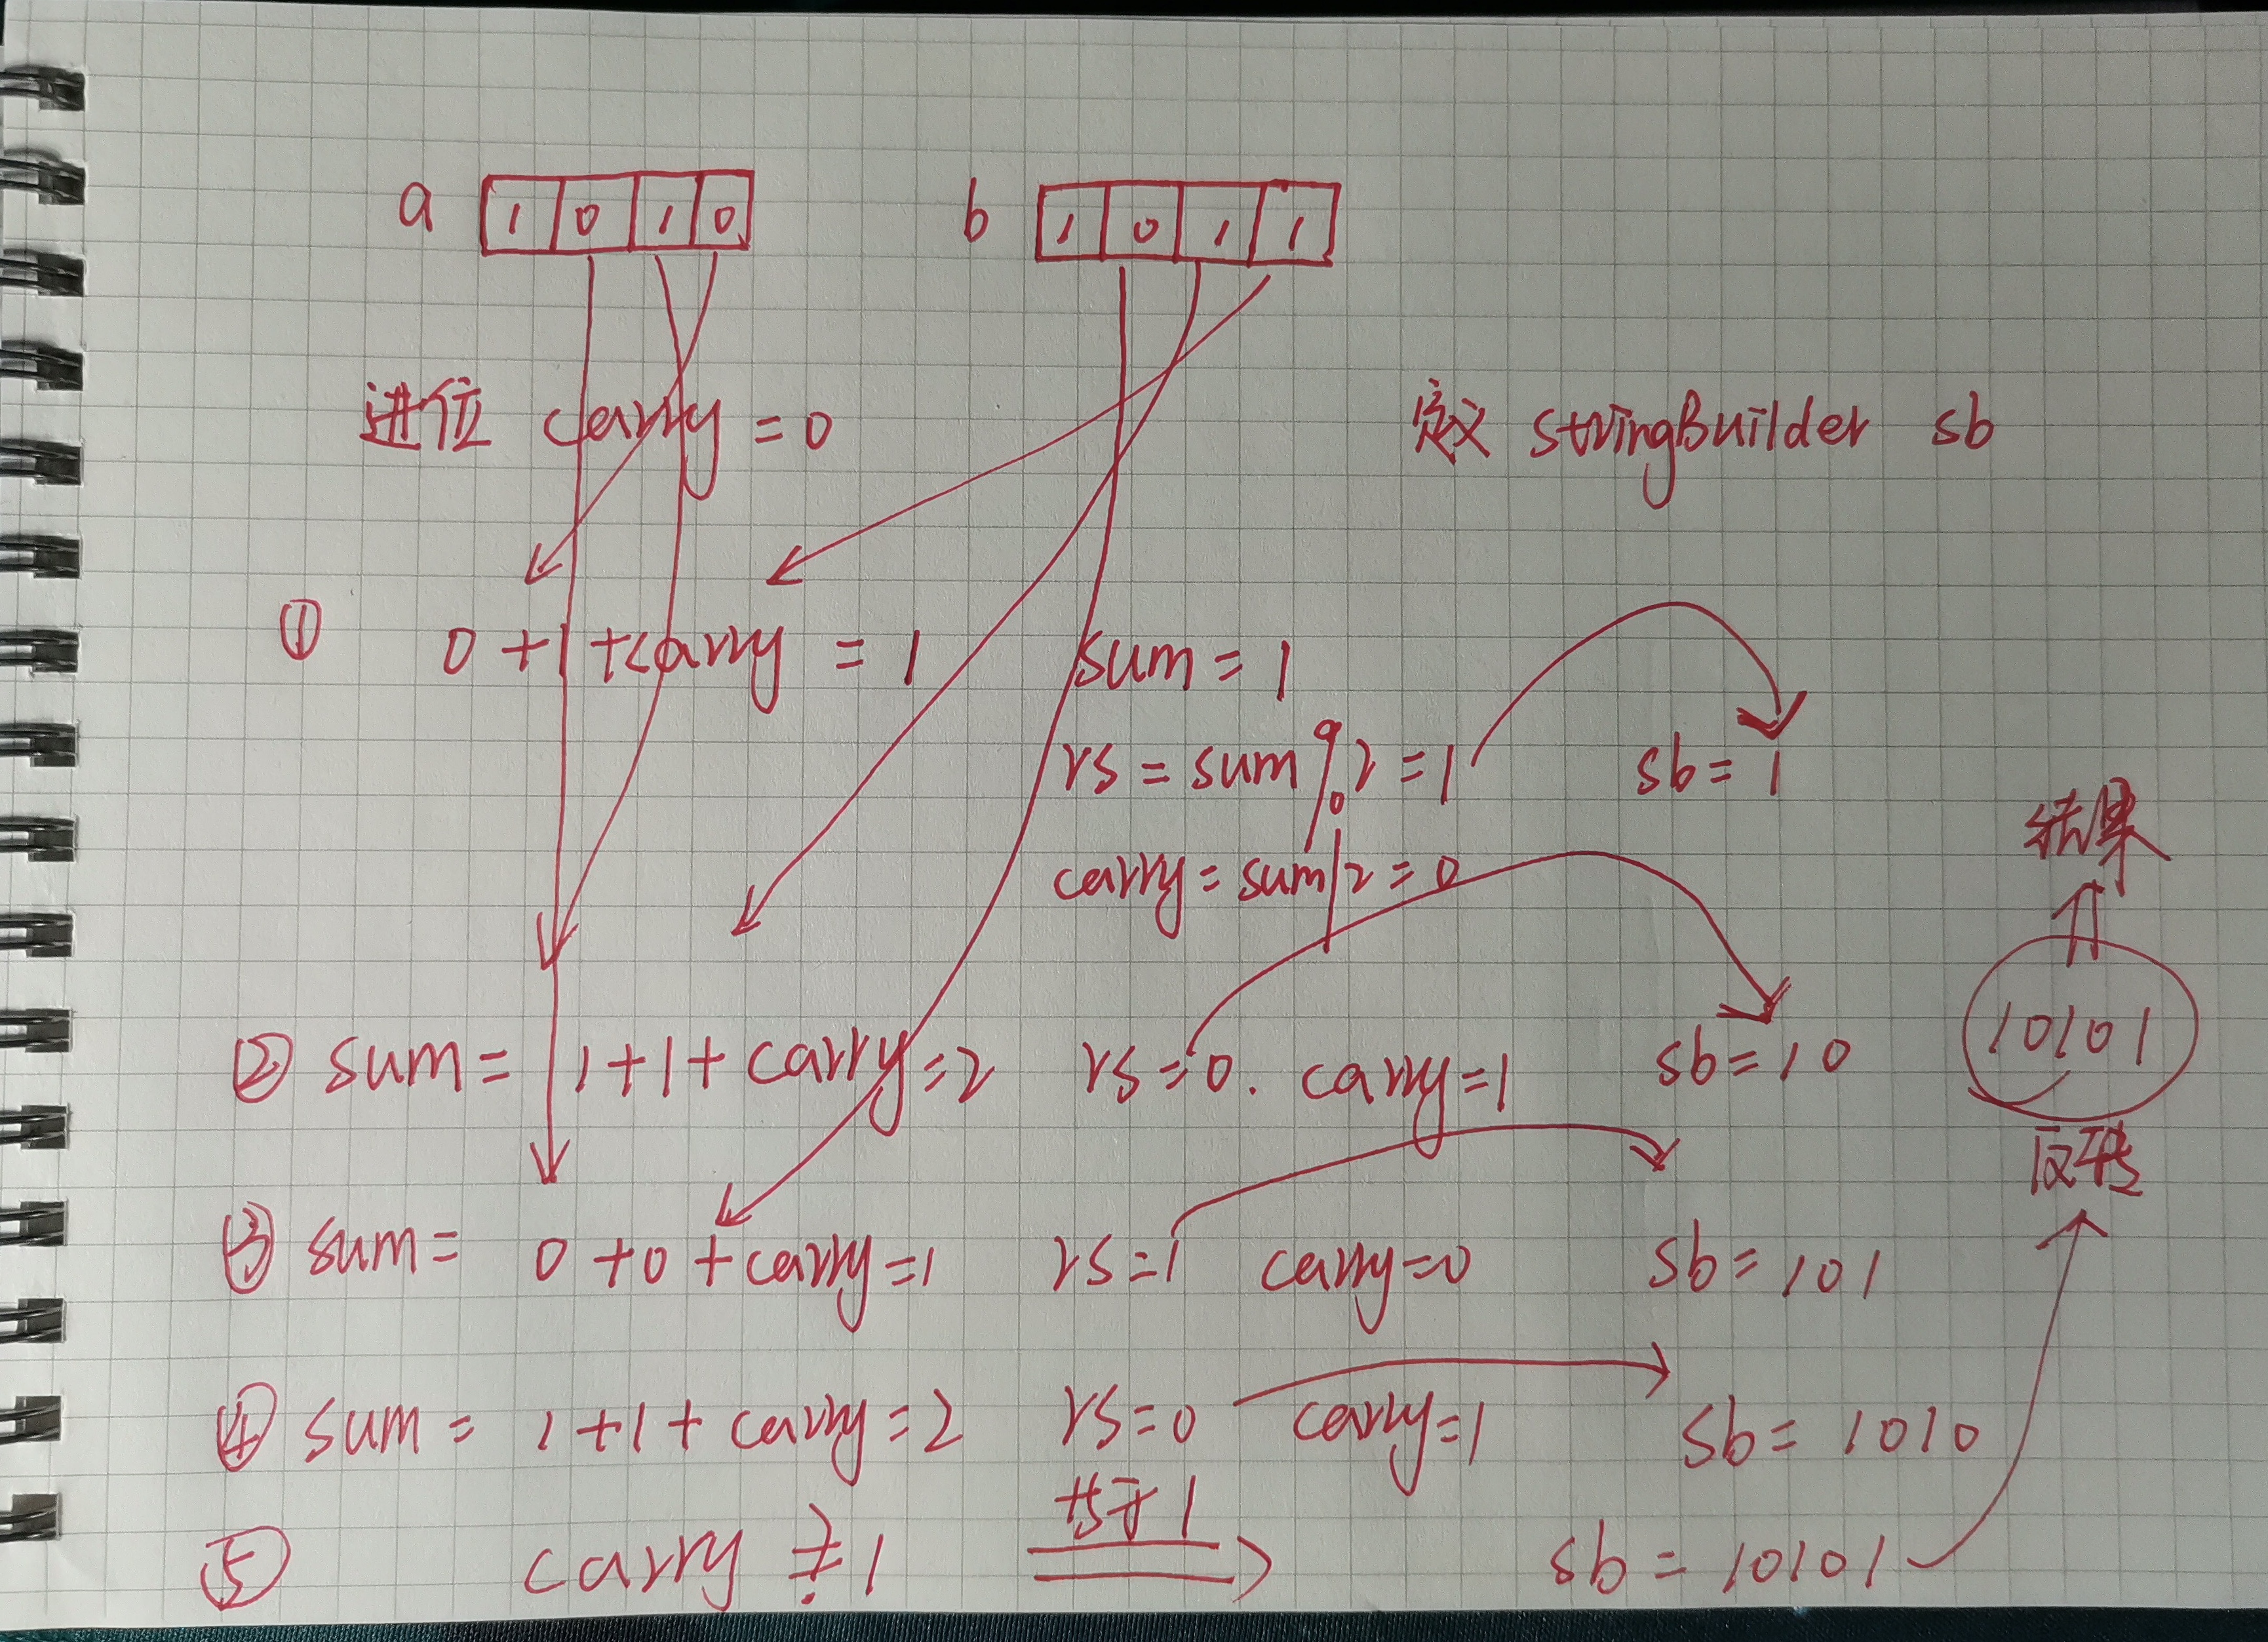 a 1 0 1 0 b 1 0 1 1
进位 carry = 0 定义 StringBuilder sb
① 0 + 1 + carry = 1 sum = 1
rs = sum % 2 = 1 sb = 1
结果
carry = sum / 2 = 0
10101
② sum = 1 + 1 + carry = 2 rs = 0. carry = 1 sb = 10
反转
③ sum = 0 + 0 + carry = 1 rs = 1 carry = 0 sb = 101
④ sum = 1 + 1 + carry = 2 rs = 0 carry = 1 sb = 1010
⑤ carry 1 sb = 10101